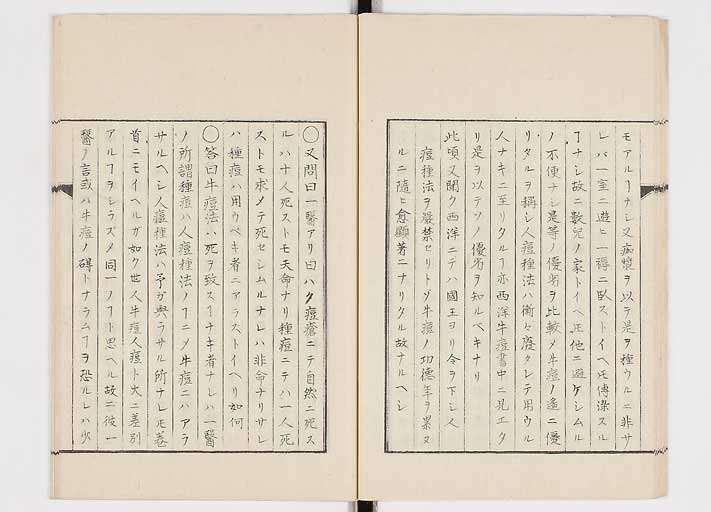 モアルヿナシ又痂漿ヲ以テ是ヲ種ウルニ非サ
レバ一室ニ遊ヒ一褥ニ臥ストイヘ𪜈傳染スル
ヿナシ故ニ數兒ノ家トイヘ𪜈他ニ避ケシムル
ノ不便ナシ是等ノ優劣ヲ比較メ牛痘ノ遙ニ優
リタルヲ稱シ人痘種法ハ漸々廢タレテ用ウル
人ナキニ至リタルヿ亦西洋牛痘書中ニ見エタ
リ是ヲ以テソノ優劣ヲ知ルベキナリ
此頃又聞ク西洋ニテハ國王ヨリ令ヲ下シ人
痘種法ヲ嚴禁セリトゾ牛痘ノ功德年ヲ累ヌ
ルニ隨ヒ愈顯著ニナリタル故ナルヘシ
〇又問曰一醫アリ曰ハク痘瘡ニテ自然ニ死ス
ルハ十人死ストモ天命ナリ種痘ニテハ一人死
ストモ求メテ死セシムルナレハ非命ナリサレ
ハ種痘ハ用ウベキ者ニアラストイヘリ如何
〇答曰牛痘法ハ死ヲ致スヿナキ者ナレハ一醫
ノ所謂種痘ハ人痘種法ノヿニメ牛痘ニハアラ
サルヘシ人痘種法ハ予ガ與ラサル所ナレ𪜈卷
首ニモイヘルガ如ク世人牛痘人痘ト大ニ差別
アルヿヲシラズメ同一ノヿト思ヘル故ニ彼一
醫ノ言或ハ牛痘ノ碍トナラムヿヲ恐ルレハ少